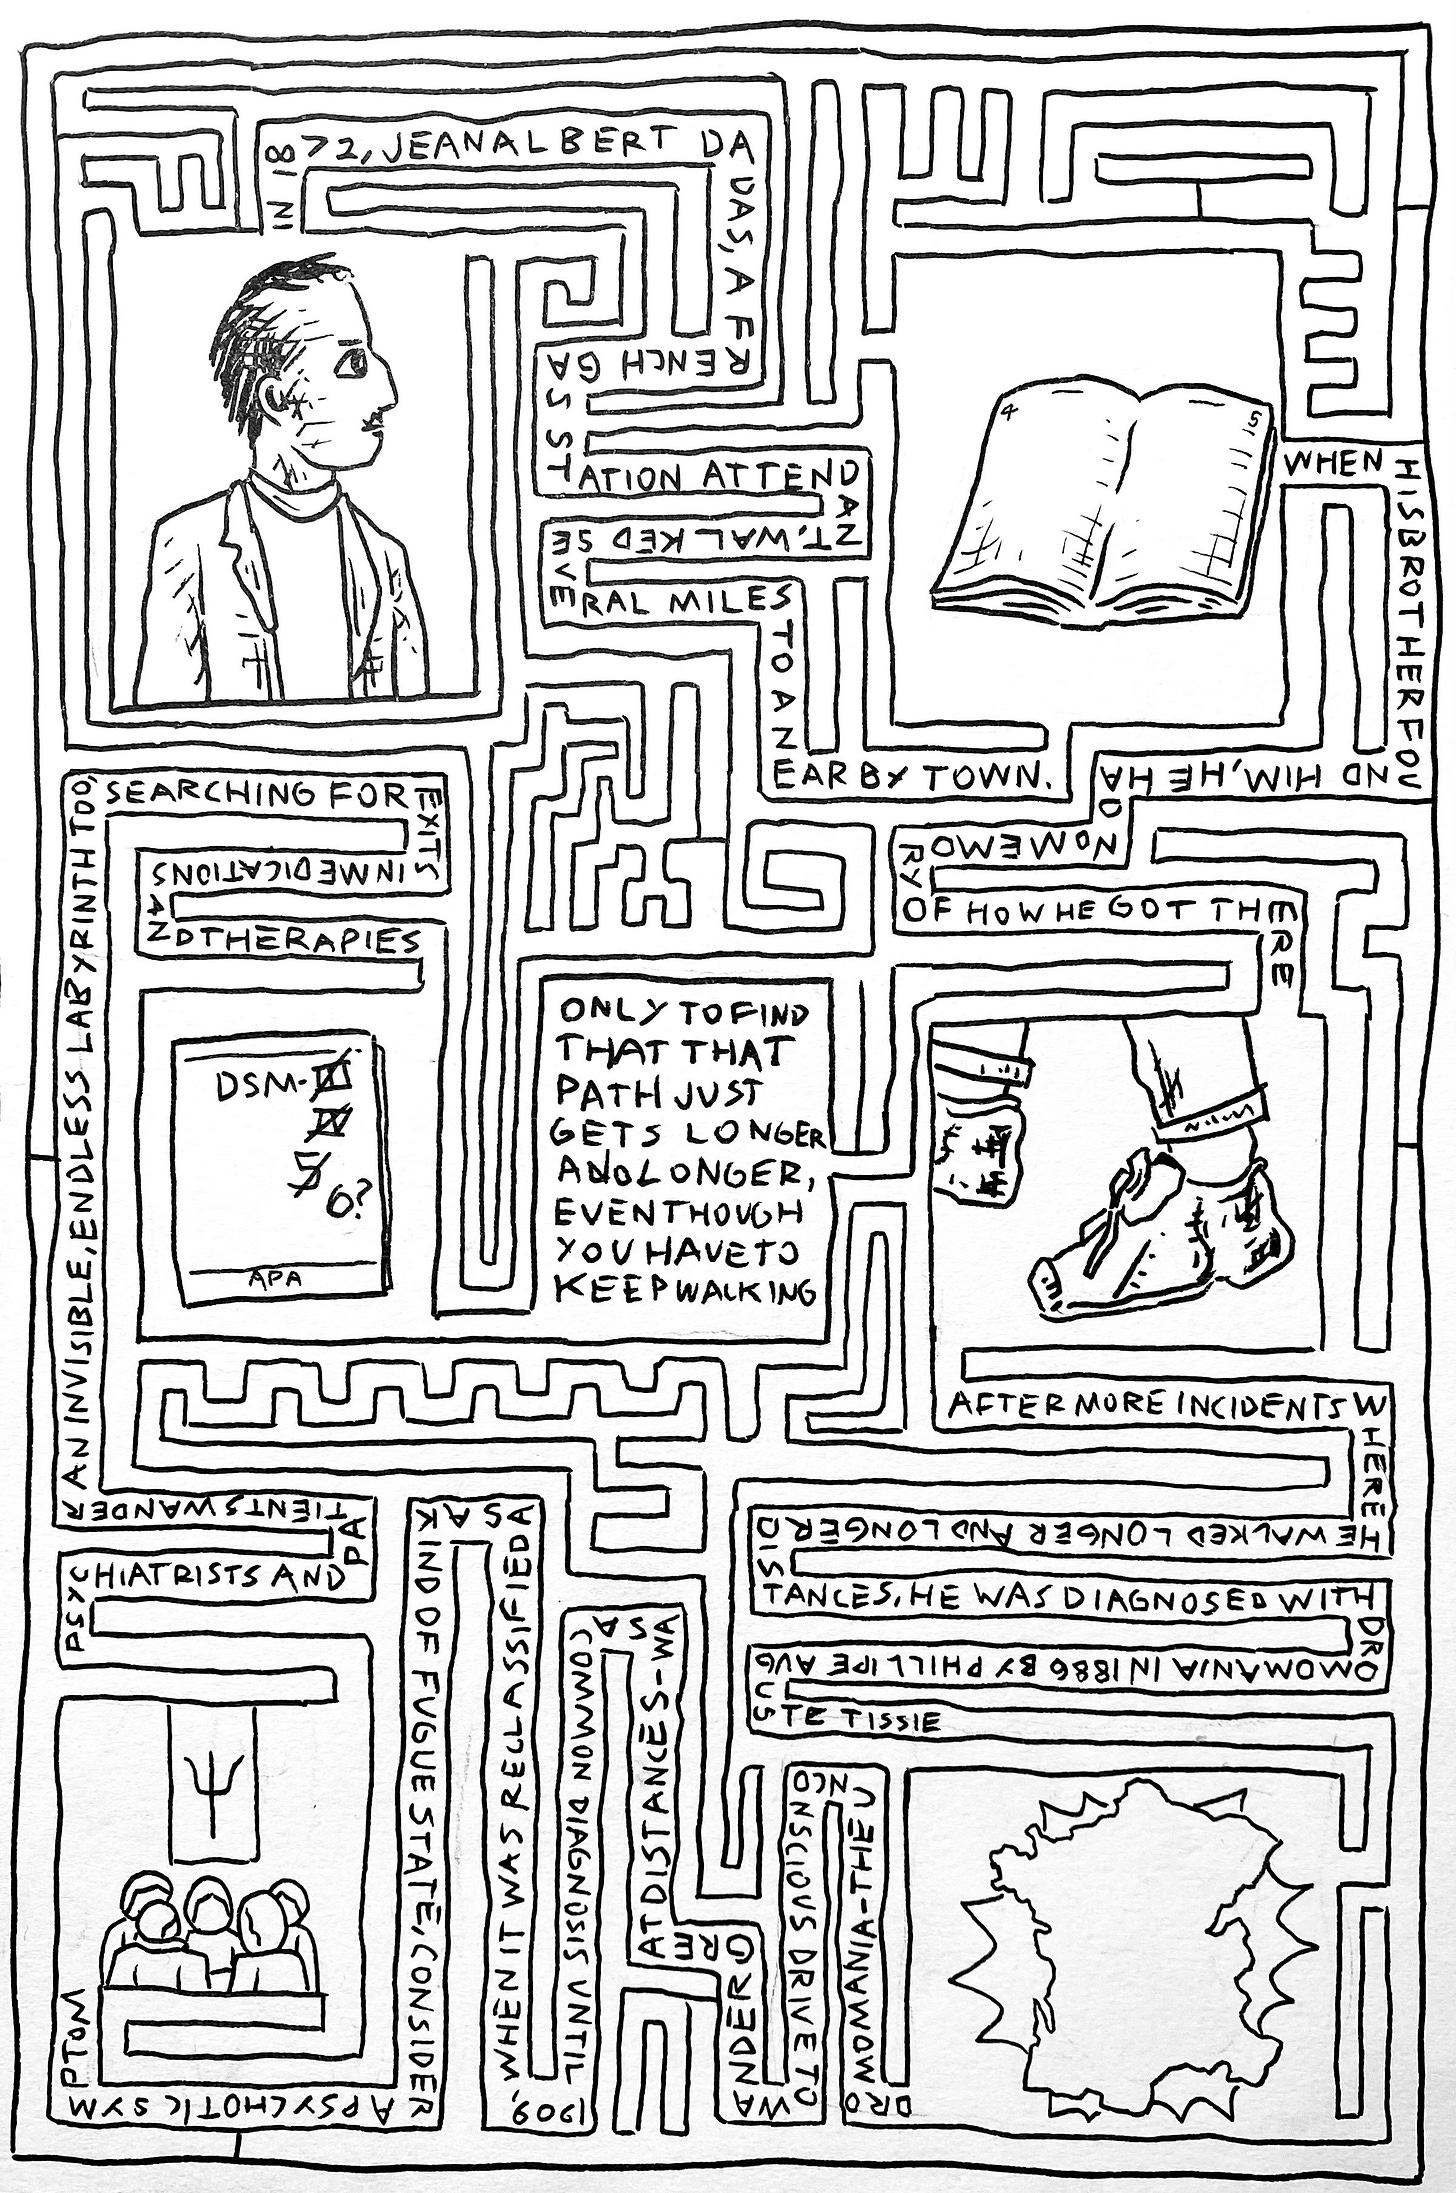 IN 18
72, JEAN ALBERT DA
DAS, A F
RENCH GA
S ST
ATION ATTEND
AN
T, WALKED SE
VE
RAL MILES
TO A N
EARBY TOWN.
4
5
WHEN
HIS BROTHER FOU
ND HIM, HE HA
D
NO MEMO
RY
OF HOW HE GOT THE
RE
AFTER MORE INCIDENTS W
HERE
HE WALKED LONGER AND LONGER D
IS
TANCES, HE WAS DIAGNOSED WITH
DR
OMOMANIA IN 1886 BY PHILLIPE AUG
US
TE TISSIE
DRO
MOMANIA-THE
UNC
ONSCIOUS DRIVE TO
WA
NDER
GRE
AT DISTANCES-WA
S A
COMMON DIAGNOSIS UNTIL
1909,
WHEN IT WAS RECLASSIFIED
AS A K
IND OF FUGUE STATE, CONSIDER
A PSYCHOTIC SYM
PTOM
PSYC
HIATRISTS AND
PA
TIENTS WANDER
AN INVISIBLE, ENDLESS LABYRINTH TOO,
SEARCHING FOR
EXITS
IN MEDICATIONS
AN
D THERAPIES
DSM-III
IV
5
6?
APA
ONLY TO FIND
THAT THAT
PATH JUST
GETS LONGER
AND LONGER,
EVEN THOUGH
YOU HAVE TO
KEEP WALKING